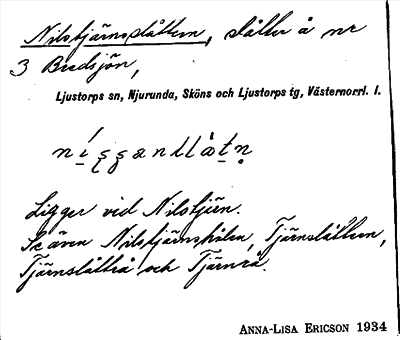 Nilstjärnslåtten, slåtter å nr
3 Bredsjön,
Ljustorps sn, Njurunda, Sköns och Ljustorps tg, Västernorrl. l.
Ligger vid Nilstjärn.
Se även Nilstjärnshöten, Tjärnslåtten,
Tjärnslåtteå och Tjärnrå.
ANNA-LISA ERICSON 1934